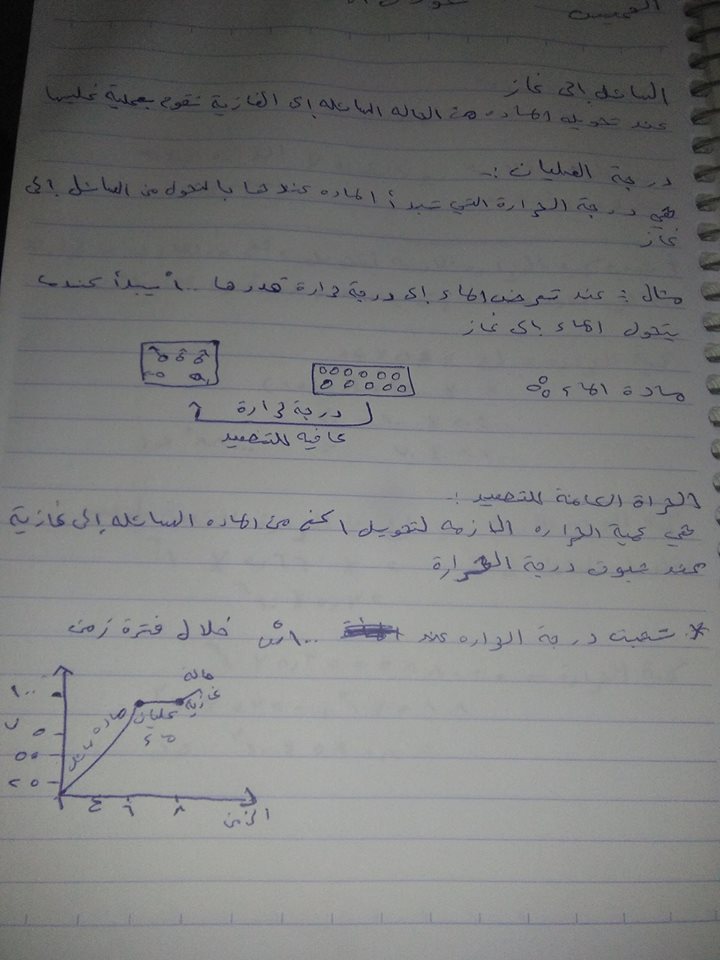 الخميس
السائل الى غاز
عند تحويل المادة من الحالة السائله إلى الغازية تقوم بعملية غليها
درجة الغليان :-
هي درجة الحرارة التي تبدأ الماده عندها بالتحول من السائل إلى
غاز
مثال : عند تعرض الماء إلى درجة حرارة قدرها ١٠٠ْ يبدأ عندها
يتحول الماء إلى غاز
مادة الماء
درجة حرارة
كافيه للتصعيد
الحراة الكامنة للتصعيد :-
هي كمية الحراره الازمه لتحويل ١كغم من الماده السائله إلى غازية
عند ثبوت درجة الحرارة
* ثبتت درجة الحراره عند ١٠٠ْس خلال فترة زمن
حالة
غازية
١٠٠
غليان
ماء
٧٥
٥٠
٢٥
٤ ٦ ٨
الزمن